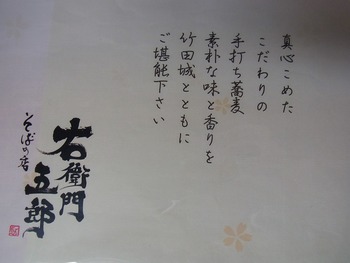 真心こめた
こだわりの
手打ち蕎麦
素朴な味と香りを
竹田城とともに
ご堪能下さい
そばの香
右衛門
五郎